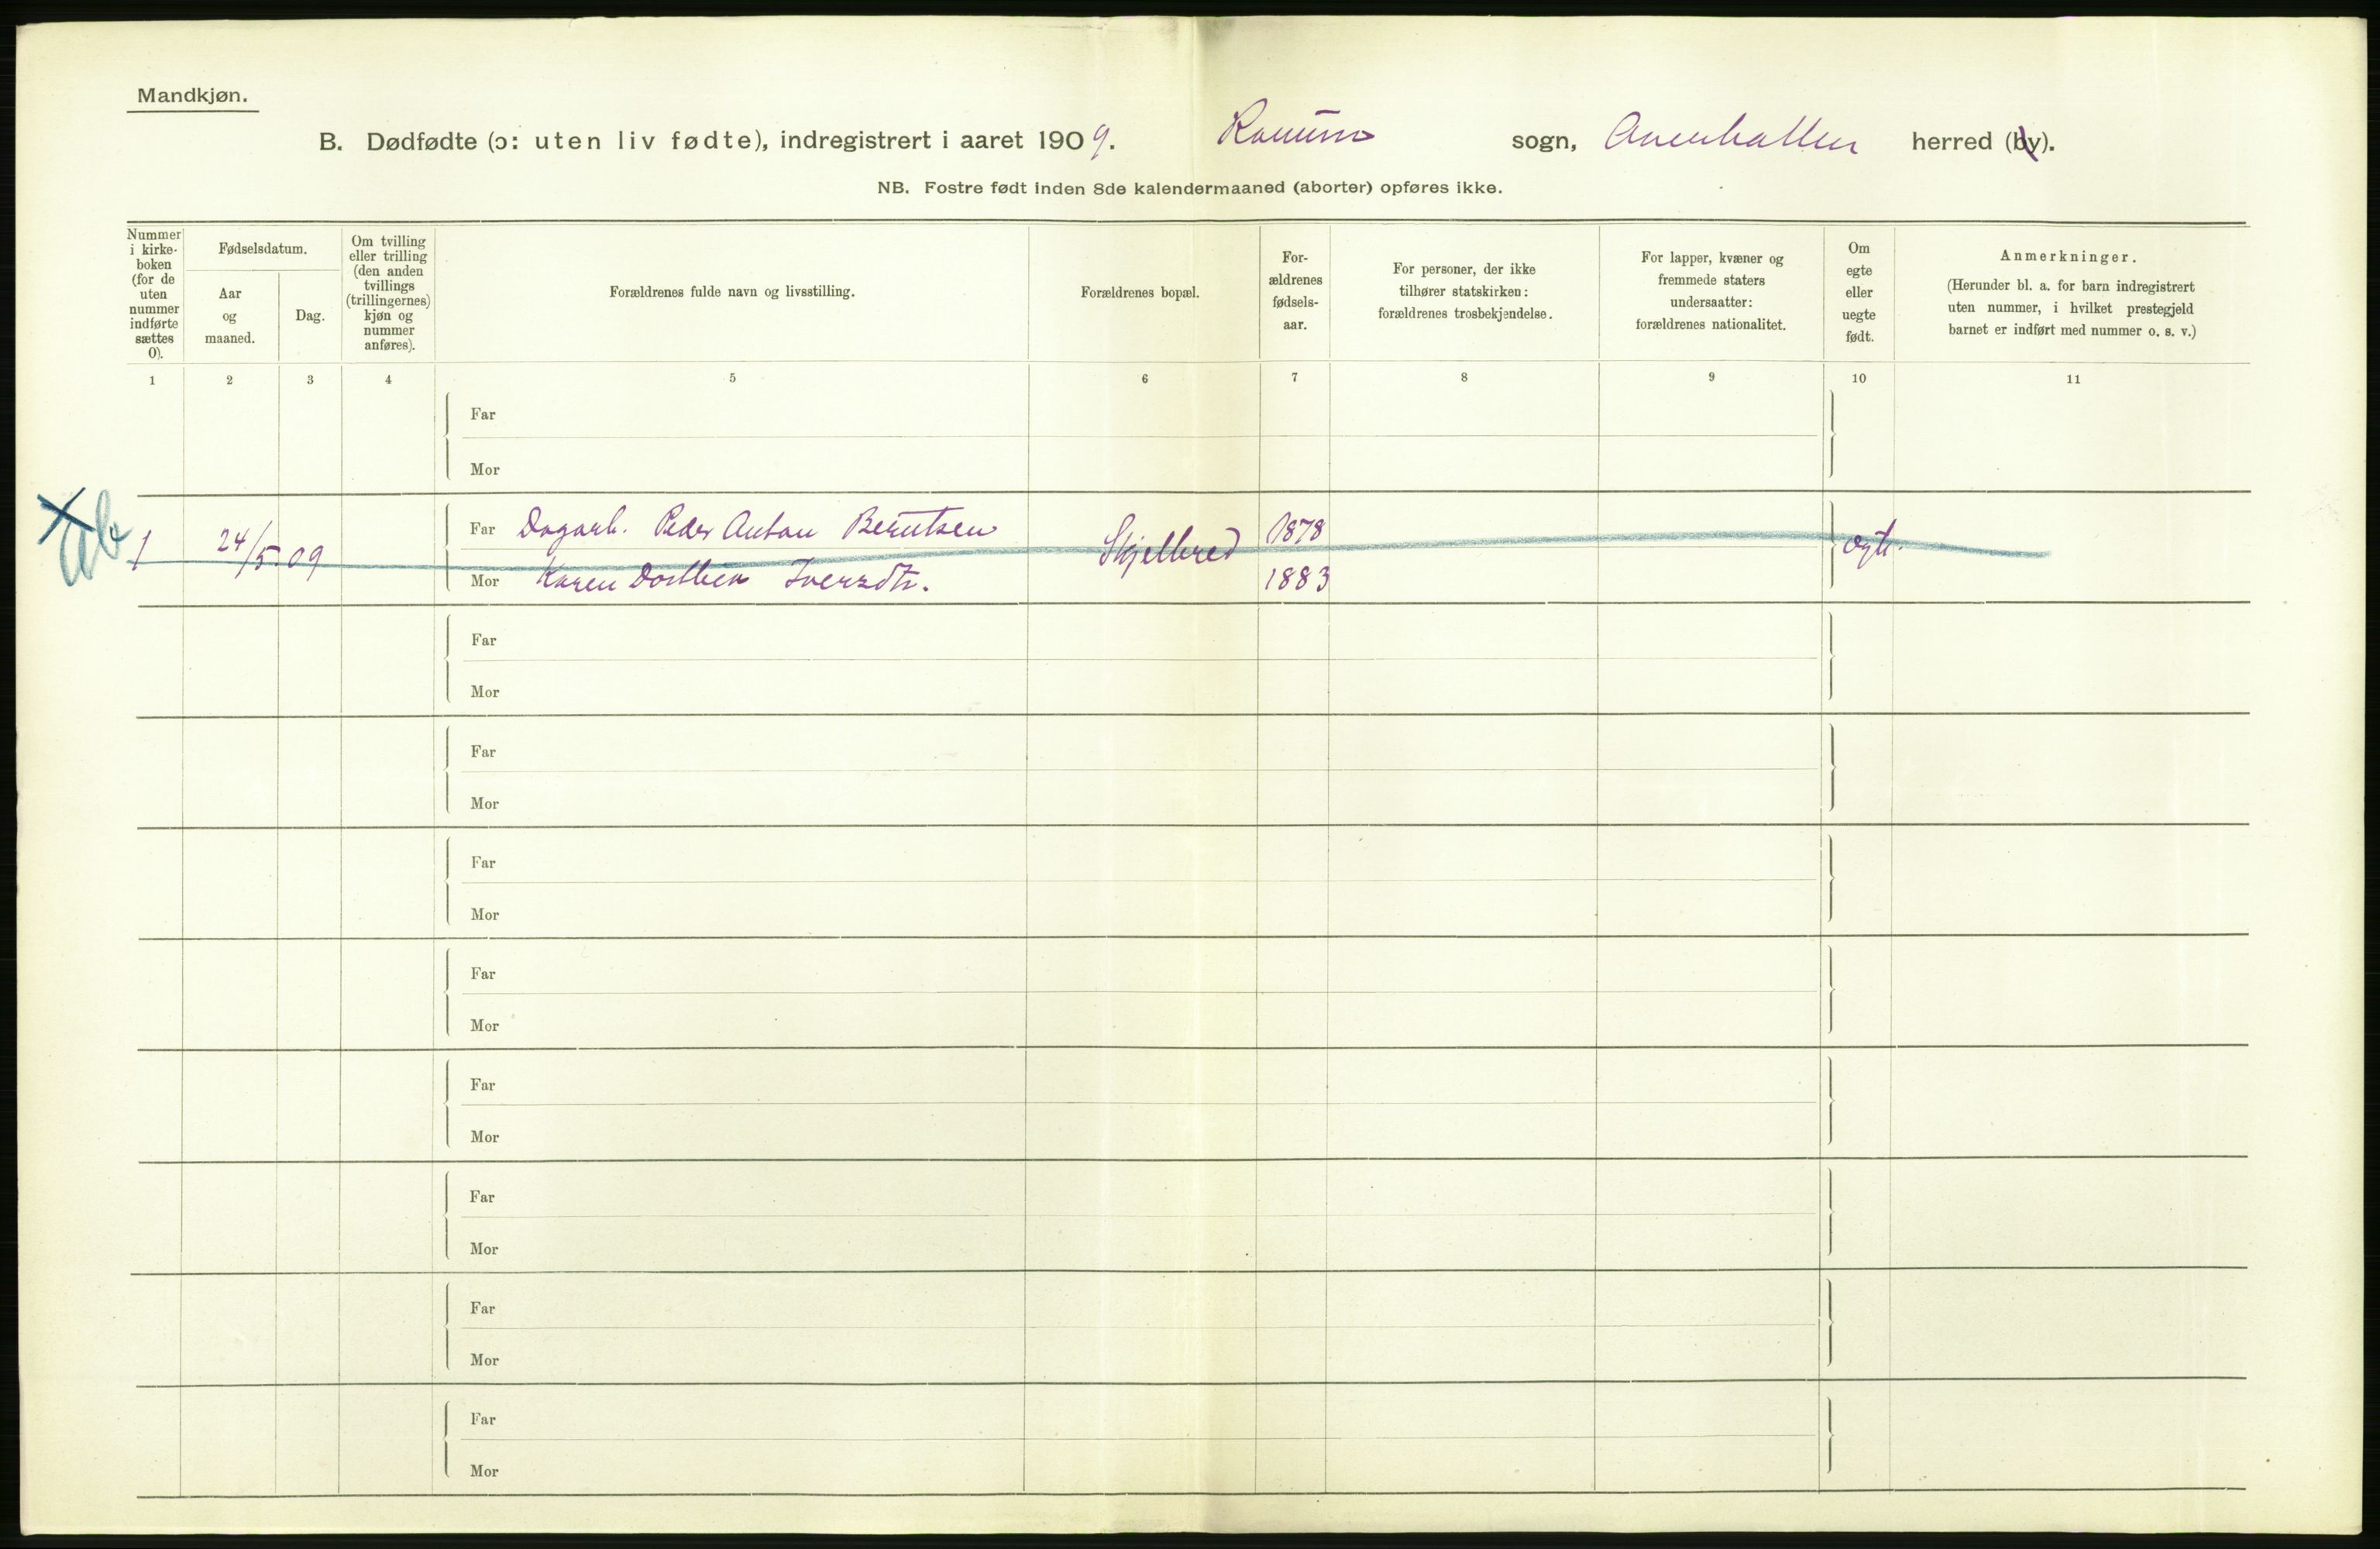 Mandkjøn.
B. Dødfødte (ɔ: uten liv fødte), indregistrert i aaret 1909. Ranum sogn, Overhallen herred (by).
NB. Fostre født inden 8de kalendermaaned (aborter) opføres ikke.
Nummer
i kirke-
boken
(for de
uten
nummer
indførte
sættes
0).
Fødselsdatum.
Aar
og
maaned.
Dag.
Om tvilling
eller trilling
(den anden
tvillings
(trillingernes)
kjøn og
nummer
anføres).
Forældrenes fulde navn og livsstilling.
Forældrenes bopæl.
For-
ældrenes
fødsels-
aar.
For personer, der ikke
tilhører statskirken:
forældrenes trosbekjendelse.
For lapper, kvæner og
fremmede staters
undersaatter:
forældrenes nationalitet.
Om
egte
eller
uegte
født.
Anmerkninger.
(Herunder bl. a. for barn indregistrert
uten nummer, i hvilket prestegjeld
barnet er indført med nummer o. s. v.)
1 2 3 4 5 6 7 8 9 10 11
Far
Mor
1 24/5 09 Far Dagarb. Peder Anton Berntsen Skjelbred 1878 ægte.
Mor Karen Dorthea Iversdtr. 1883
Far
Mor
Far
Mor
Far
Mor
Far
Mor
Far
Mor
Far
Mor
Far
Mor
Far
Mor